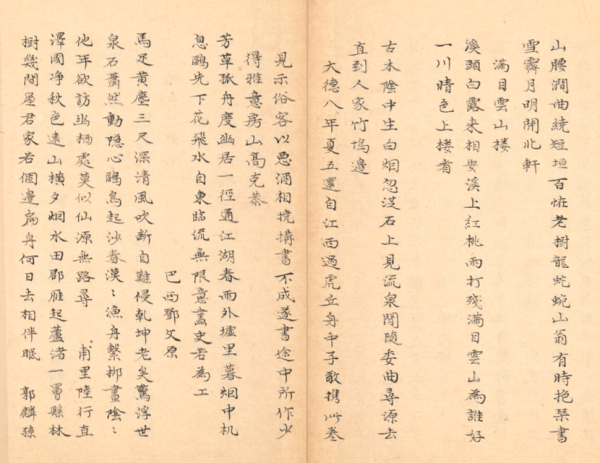 山腰澗曲繞短垣百怪老樹龍蛇蜿山翁有時抱琴書
雪霽月明開北軒
滿目雲山樓
溪頭白露來相安溪上紅桃雨打殘滿目雲山為誰好
一川晴色上樓看
古木陰中生白烟忽從石上見流泉閒隨委曲尋源去
直到人家竹塢邊
大德八年夏五還自江西過虎丘身中子敬携此卷
見示俗客以惡酒相撓搆書不成遂書途中所作少
得雅意房山高克恭
芳草孤舟度幽居一徑通江湖春雨外墟里暮烟中机
息鷗先下花飛水自東臨流無限意畫史若為工
巴西鄧文原
馬足黃塵三尺深清風吹斷自難侵乾坤老矣驚浮世
泉石蕭然動隱心鷗鳥起沙春漠〻漁舟繫柳晝陰〻
他年欲訪幽栖處莫似仙源無路尋 甫里陸行直
澤國淨秋色遠山橫夕烟水田郡雁起蘆渚一罾縣林
樹幾間屋君家若個邊扁舟何日去相伴眠 郭麟孫